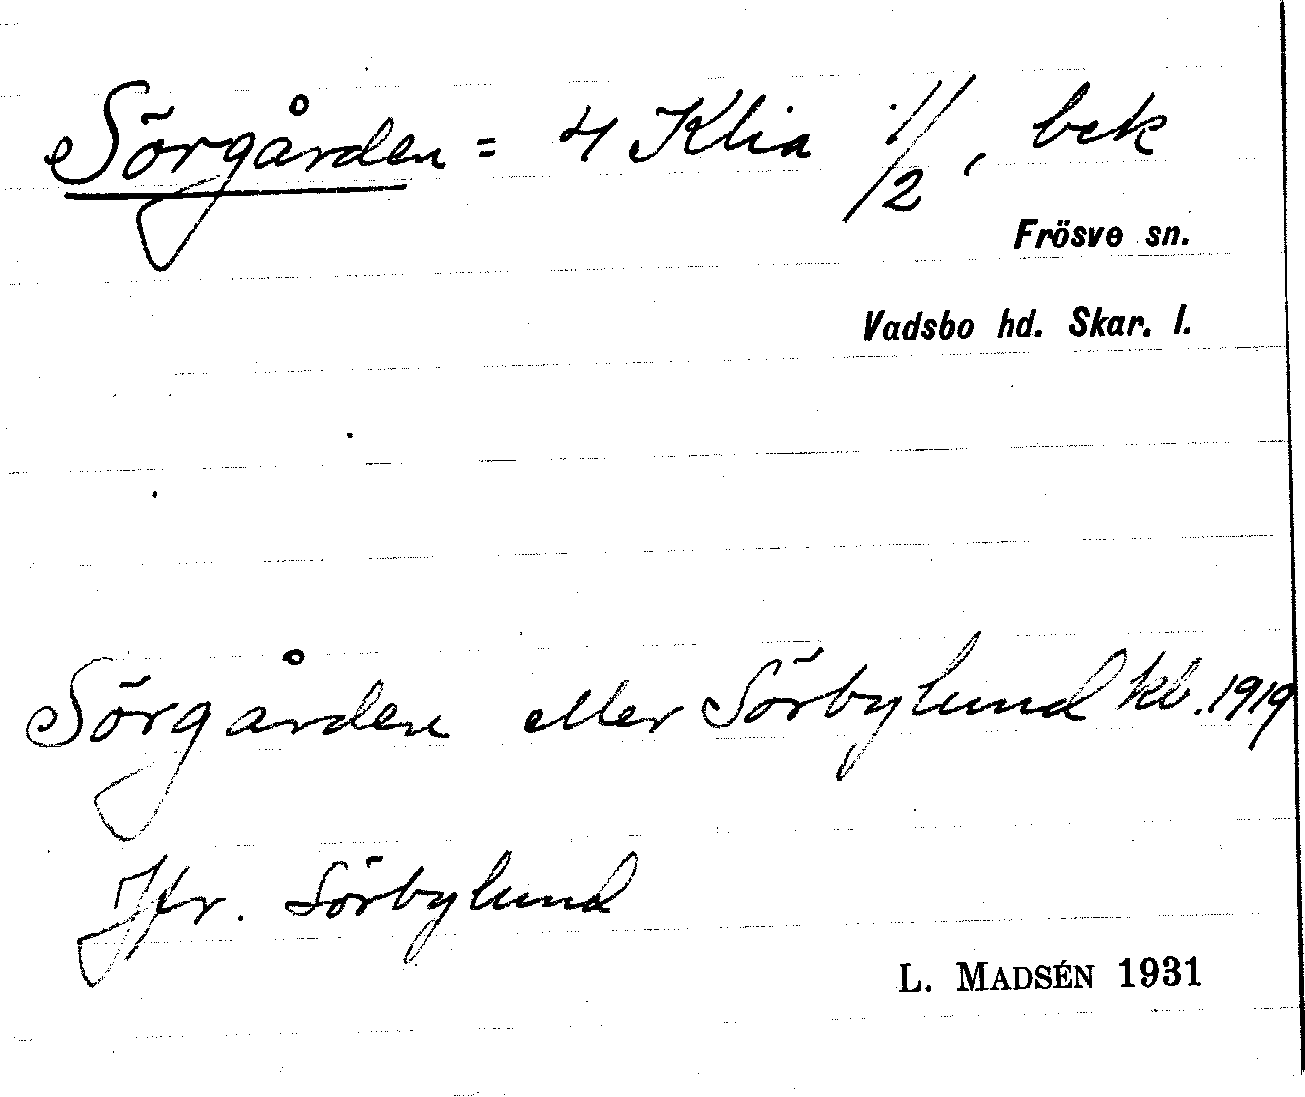 Sörgården = 4 Klia 1/2, bek
Frösve sn.
Vadsbo hd. Skar. l.
Sörgården eller Sörbylund kb. 1919
Jfr. Sörbylund
L. MADSÉN 1931